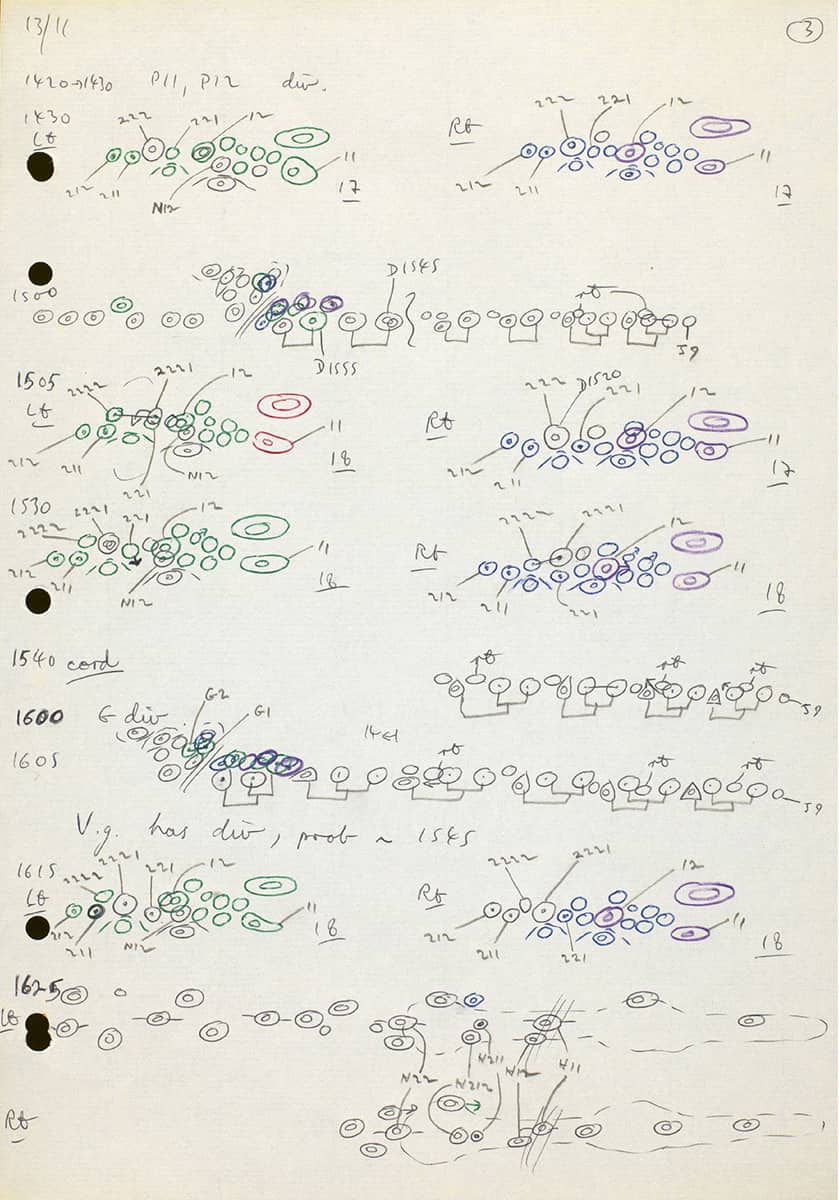 13/11 3
1420→1430 P11, P12 div.
1430 222 221 12 222 221 12
Lt Rt
11 11
212 211 N12 17 212 211 17
D1545
1500 rt
D1555 J9
1505 2222 2221 12 222 D1520 221 12
Lt Rt
11 11
212 211 221 N12 18 212 211 17
1530 2222 2221 221 12 2222 2221 12
Rt
11 11
212 211 N12 18 212 211 221 18
1540 cord rt rt rt
J9
1600 G div G2 G1
1605 rt rt rt
J9
V.g. has div, prob ~ 1545
1615 2222 2221 221 12 2222 2221 12
Lt Rt
11 11
212 211 N12 18 212 211 221 18
1625
Lt
N22 N212 N211 N12 N11
Rt